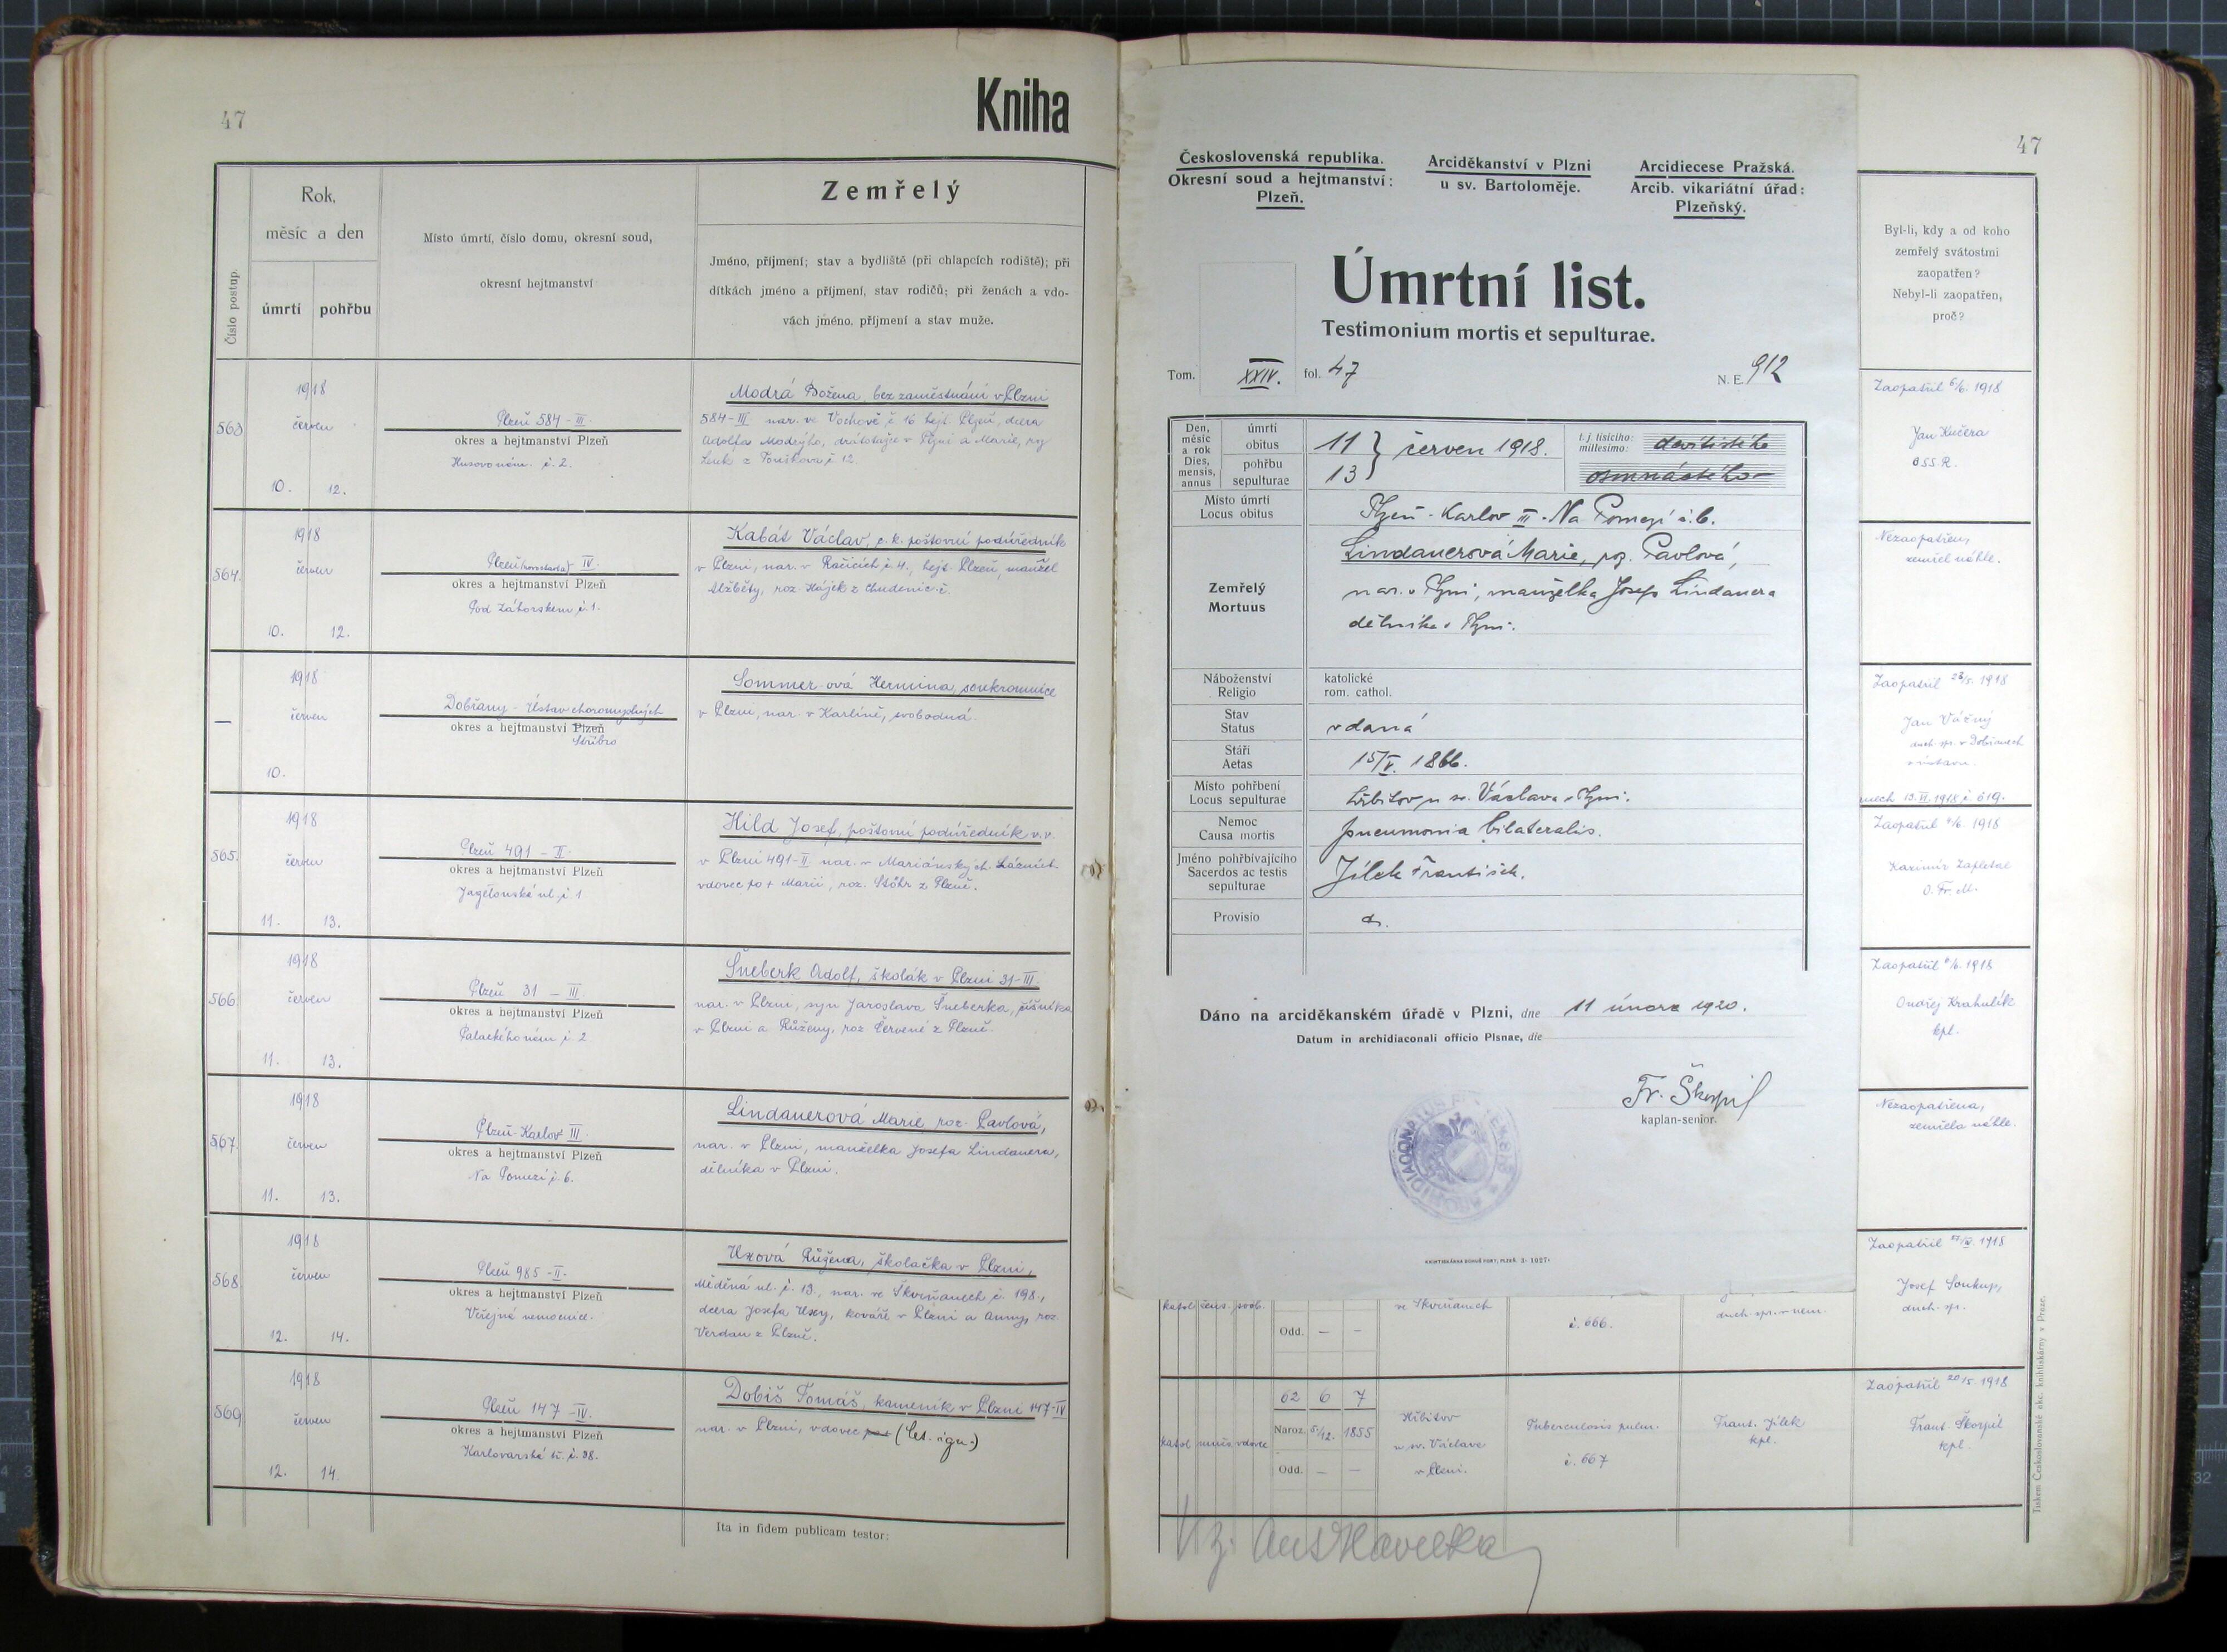 47
Kniha
Číslo postup.
Rok,
měsíc a den
úmrtí
pohřbu
Místo úmrtí, číslo domu, okresní soud,
okresní hejtmanství
Zemřelý
Jméno, příjmení; stav a bydliště (při chlapcích rodiště); při
dítkách jméno a příjmení, stav rodičů; při ženách a vdo-
vách jméno, příjmení a stav muže.
563
1918
červen
10.
12.
Plzeň 584 - III.
okres a hejtmanství Plzeň
Husovo nám. č. 2.
Modrá Božena, bez zaměstnání v Plzni
584-III nar. ve Vochově č 16 hejt. Plzeň, dcera
Adolfa Modrýho, v Plzni a Marie, roz
z č 12.
564.
1918
červen
10.
12.
Plzeň IV.
okres a hejtmanství Plzeň
Pod Záhorskem č. 1.
Kabát Václav, c. k. poštovní podúředník
v Plzni, nar. v Račicích č. 4., hejt. Plzeň, manžel
Alžběty, roz. Hájek z Chudenic č.
—
1918
červen
10.
Dobřany - Ústav choromyslných
okres a hejtmanství Plzeň
Stříbro
Sommer-ová Hermina, soukromnice
v Plzni, nar. v Karlíně, svobodná.
565.
1918
červen
11.
13.
Plzeň 491 - II.
okres a hejtmanství Plzeň
Jagellonská ul. č 1
Hild Josef, poštovní podúředník v. v.
v Plzni 491-II nar. v Mariánských Lázních
vdovec po † Marii, roz. Stöhr z Plzně.
566
1918
červen
11.
13.
Plzeň 31 - III
okres a hejtmanství Plzeň
Palackého nám. č 2
Šneberk Adolf, školák v Plzni 31-III.
nar. v Plzni, syn Jaroslava Šneberka, číšníka
v Plzni a Růženy, roz Červené z Plzně.
567
1918
červen
11.
13.
Plzeň-Karlov III.
okres a hejtmanství Plzeň
Na Pomezí č. 6.
Lindauerová Marie, roz. Pavlová,
nar. v Plzni, manželka Josefa Lindauera,
dělníka v Plzni.
568
1918
červen
12.
14.
Plzeň 985 - II.
okres a hejtmanství Plzeň
Veřejná nemocnice.
Uxová Růžena, školačka v Plzni,
Měděná ul. č. 13., nar. ve Škvrňanech č. 198.,
dcera Josefa Uxy, kováře v Plzni a Anny, roz.
Verdan z Plzně.
569
1918
červen
12.
14.
Plzeň 147 - IV.
okres a hejtmanství Plzeň
Karlovarská tř. č. 38.
Dobiš Tomáš, kameník v Plzni 147-IV
nar. v Plzni, vdovec (cet. ign.)
Ita in fidem publicam testor:
Československá republika.
Okresní soud a hejtmanství:
Plzeň.
Arciděkanství v Plzni
u sv. Bartoloměje.
Arcidiecese Pražská.
Arcib. vikariátní úřad:
Plzeňský.
Úmrtní list.
Testimonium mortis et sepulturae.
Tom. XXIV. fol. 47 N. E. 912
Den,
měsíc
a rok
Dies,
mensis,
annus
úmrtí
obitus
pohřbu
sepulturae
11
13
červen 1918.
t. j. tisícího:
millesimo:
devítistého
osmnáctého
Místo úmrtí
Locus obitus
Plzeň - Karlov III. Na Pomezí č. 6.
Zemřelý
Mortuus
Lindauerová Marie, roz. Pavlová,
nar. v Plzni, manželka Josefa Lindauera
dělníka v Plzni.
Náboženství
Religio
katolické
rom. cathol.
Stav
Status
vdaná
Stáří
Aetas
15/V. 1866.
Místo pohřbení
Locus sepulturae
hřbitov u sv. Václava v Plzni.
Nemoc
Causa mortis
pneumonia bilateralis.
Jméno pohřbívajícího
Sacerdos ac testis
sepulturae
Jílek František.
Provisio
Dáno na arciděkanském úřadě v Plzni, dne 11 února 1920.
Datum in archidiaconali officio Plsnae, die
Fr. Škorpil
kaplan-senior.
47
Byl-li, kdy a od koho
zemřelý svátostmi
zaopatřen?
Nebyl-li zaopatřen,
proč?
Zaopatřil 6/6. 1918
Jan Kučera
Nezaopatřen,
zemřel náhle.
Zaopatřil 28/5. 1918
Jan Vážný
duch. spr. v Dobřanech
v ústavu.
Kazimír Zapletal
O. Fr. M.
Ondřej Krahulík
kpl.
Nezaopatřena,
zemřela náhle.
Josef Soukup,
duch. sp.
katol žens. svob.
Odd. — —
ve Škvrňanech
č. 666.
duch. spr. v nem.
katol muž. vdovec
62 6 7
Naroz. 5/12. 1855
Odd. — —
Hřbitov
u sv. Václava
v Plzni.
Tuberculosis pulm.
č. 667
Frant. Jílek
kpl.
Zaopatřil 20/5. 1918
Frant. Škorpil
kpl.
Tiskem Československé akc. knihtiskárny v Praze.